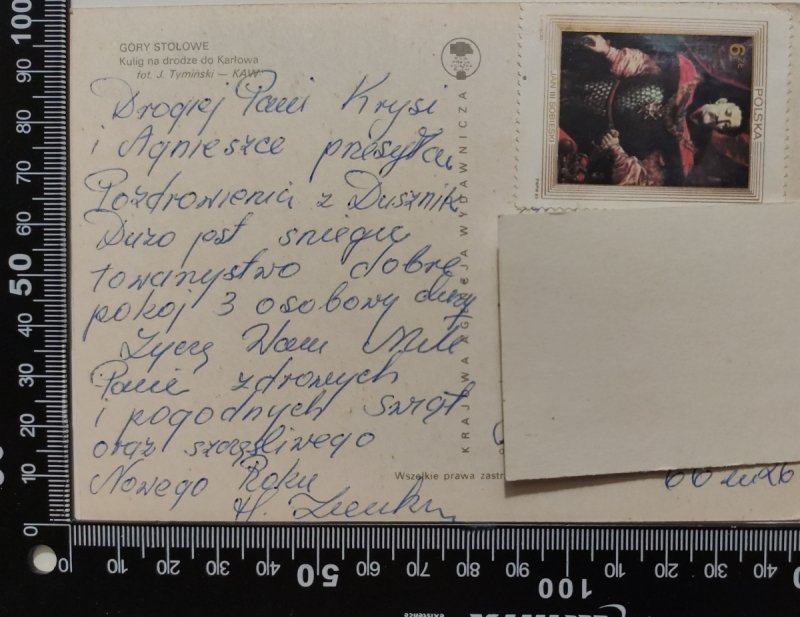 GÓRY STOŁOWE
Kulig na drodze do Karłowa
fot. J. Tymiński — KAW
Drogiej Pani Krysi
i Agnieszce przesyłam
Pozdrowienia z Dusznik
Dużo jest śniegu
towarzystwo dobre
pokój 3 osobowy duży
Życzę Wam Miłe
Panie zdrowych
i pogodnych świąt
oraz szczęśliwego
Nowego Roku
H.
KRAJOWA AGENCJA WYDAWNICZA
Wszelkie prawa zastr
6 zł
JAN III SOBIESKI
POLSKA
100
90
80
70
60
50
40
30
20
10
0
0
10
20
30
40
50
60
70
80
90
100
10
20
30
40
existence